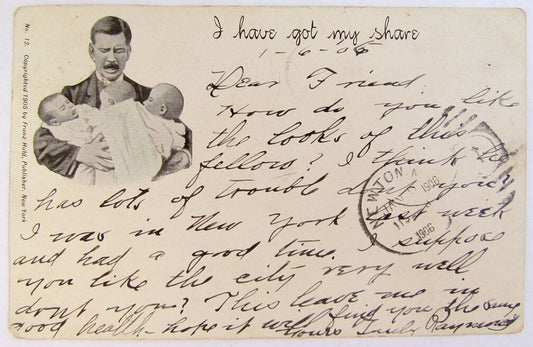 No. 12. Copyrighted 1905 by Franz Huld, Publisher, New York
I have got my share
1-6-06
Dear Friend
How do you like
the looks of this
fellow? I think he
has lots of trouble dont you?
I was in New York last week
and had a good time. I suppose
you like the city very well
dont you? This leave me in
good health - hope it will find you the same
Yours Truly Raymond
NEWTON
1906
1906